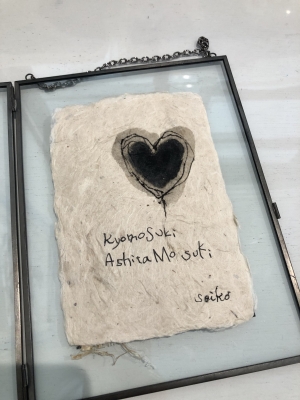 KyomoSuki
AshitaMo suki
seiko